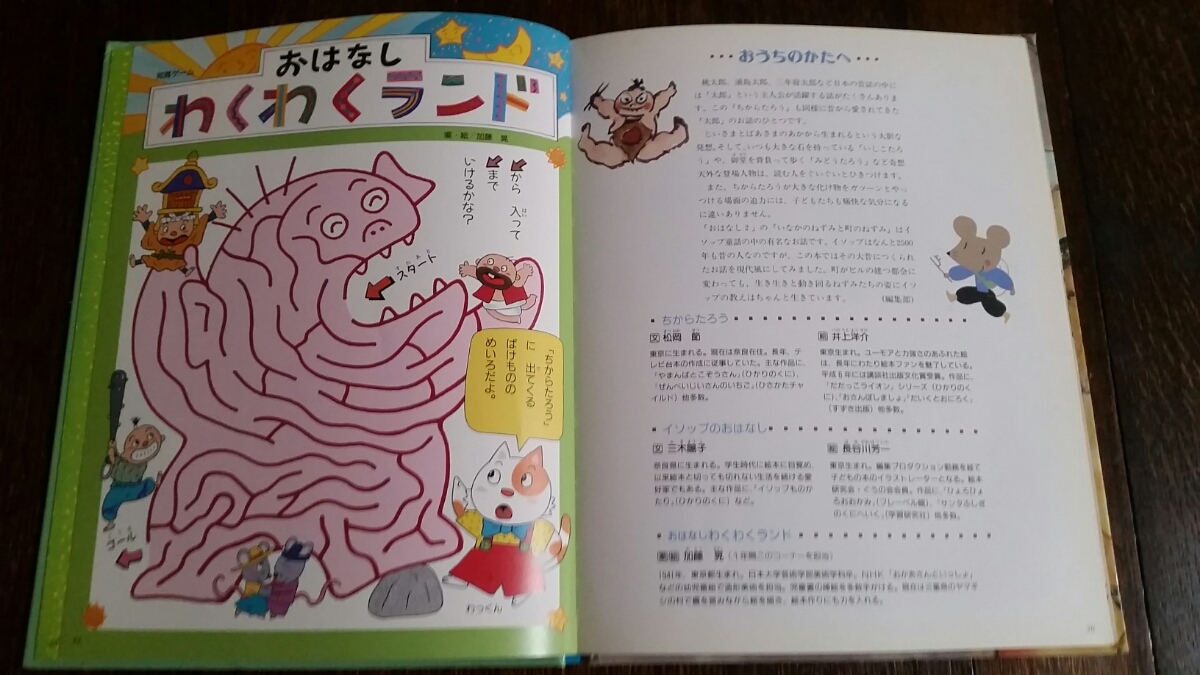 知育ゲーム
おはなし
わくわくランド
案・絵/加藤 晃
から 入って
まで
いけるかな?
スタート
「ちからたろう」
に 出てくる
ばけものの
めいろだよ。
ゴール
わっくん
おうちのかたへ
桃太郎、浦島太郎、三年寝太郎など日本の昔話の中に
は「太郎」という主人公が活躍する話がたくさんありま
す。この『ちからたろう』も同様に昔から愛されてきた
「太郎」のお話のひとつです。
じいさまとばあさまのあかから生まれるという大胆な
発想。そして、いつも大きな石を持っている「いしこたろ
う」や、御堂を背負って歩く「みどうたろう」など奇想
天外な登場人物は、読む人をぐいぐいとひきつけます。
また、ちからたろうが大きな化け物をガツーンとやっ
つける場面の迫力には、子どもたちも痛快な気分になる
に違いありません。
『おはなし2』の「いなかのねずみと町のねずみ」はイ
ソップ童話の中の有名なお話です。イソップはなんと2500
年も昔の人なのですが、この本ではその大昔につくられ
たお話を現代風にしてみました。町がビルの建つ都会に
変わっても、生き生きと動き回るねずみたちの姿にイソ
ップの教えはちゃんと生きています。 (編集部)
ちからたろう
文 松岡 節
東京に生まれる。現在は奈良在住。長年、テ
レビ台本の作成に従事していた。主な作品に、
「やまんばとこぞうさん」(ひかりのくに)、
「ぜんべいじいさんのいちご」(ひさかたチャ
イルド)他多数。
絵 井上洋介
東京生まれ。ユーモアと力強さのあふれた絵
は、長年にわたり絵本ファンを魅了している。
平成6年には講談社出版文化賞受賞。作品に、
「だだっこライオン」シリーズ(ひかりのく
に)、「おさんぽしましょ」「だいくとおにろく」
(すずき出版)他多数。
イソップのおはなし
文 三木陽子
奈良県に生まれる。学生時代に絵本に目覚め、
以来絵本と切っても切れない生活を続ける愛
好家でもある。主な作品に、「イソップものが
たり」(ひかりのくに)など。
絵 長谷川芳一
東京生まれ。編集プロダクション勤務を経て
子どもの本のイラストレーターとなる。絵本
研究会・ぐうの会会員。作品に、「ひょろひょ
ろおおかみ」(フレーベル館)、「サンタふしぎ
のくにへいく」(学習研究社)他多数。
おはなしわくわくランド
案/絵 加藤 晃 (1年間このコーナーを担当)
1941年、東京都生まれ。日本大学芸術学部美術学科卒。NHK「おかあさんといっしょ」
などの幼児番組で造形美術を担当。児童書の挿絵を多数手がける。現在は三重県のヤマギ
シの村で農を営みながら絵を描き、絵本作りにも力を入れる。